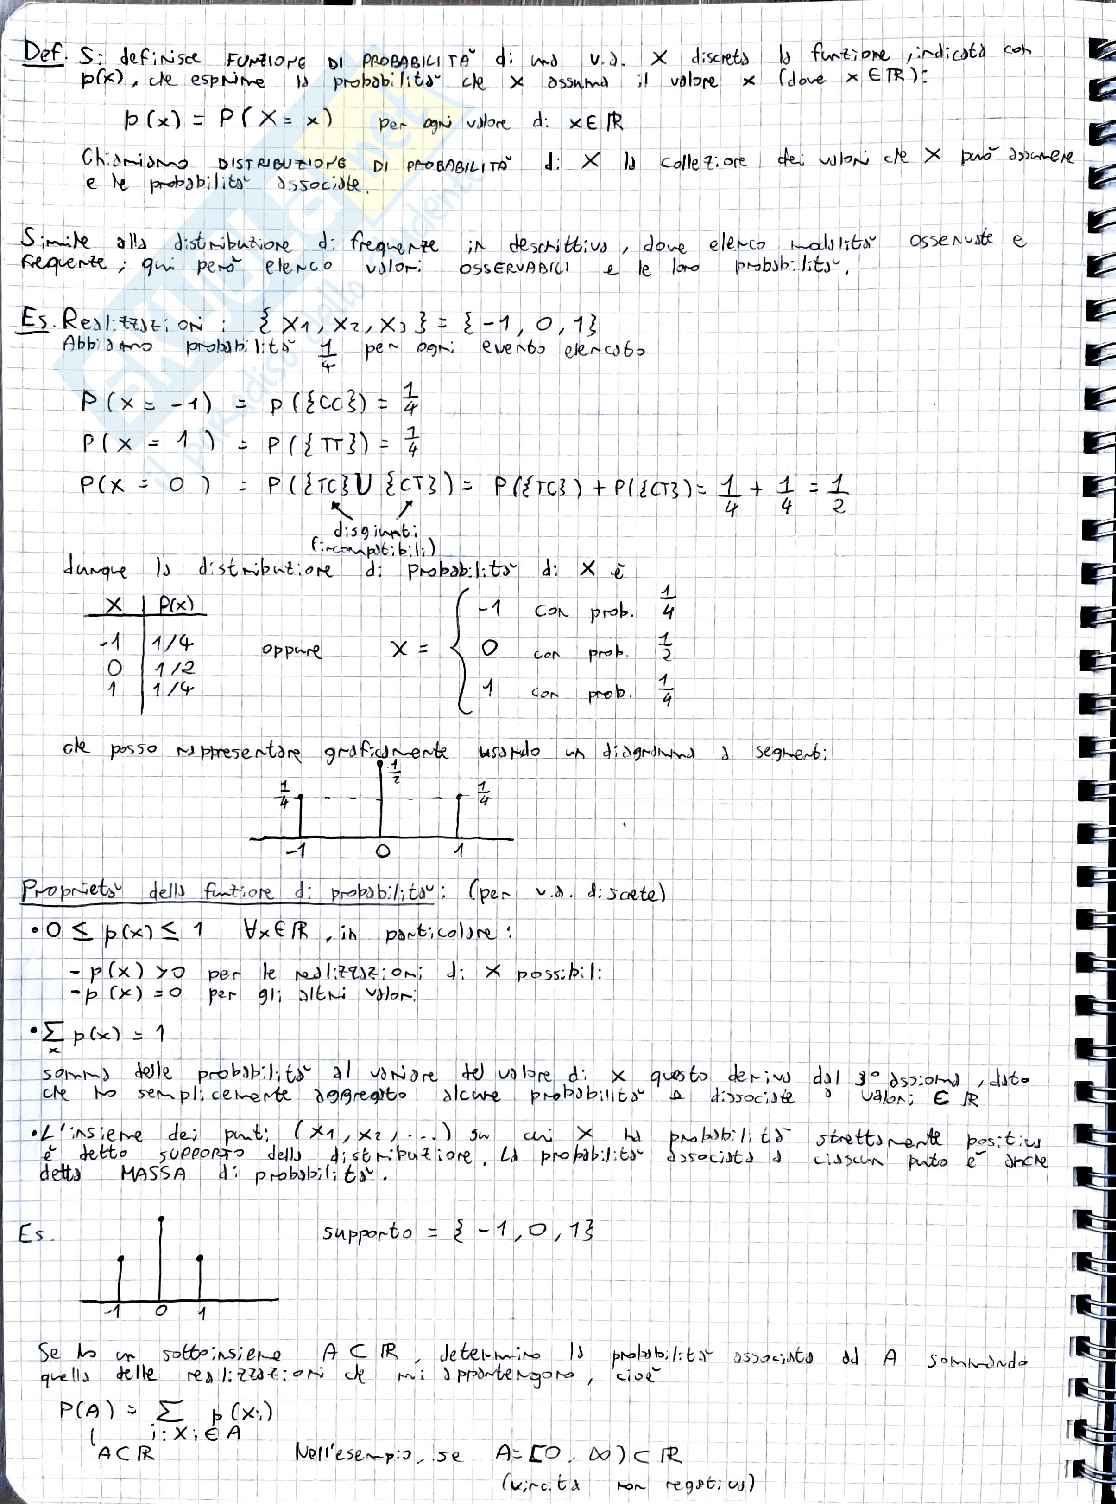 Def. Si definisce FUNZIONE DI PROBABILITÀ di una v.a. X discreta la funzione, indicata con
p(x), che esprime la probabilità che X assuma il valore x (dove x ∈ ℝ):
p(x) = P(X = x) per ogni valore di x ∈ ℝ
Chiamiamo DISTRIBUZIONE DI PROBABILITÀ di X la collezione dei valori che X può assumere
e le probabilità associate.
Simile alla distribuzione di frequenze in descrittiva, dove elenco modalità osservate e
frequenze; qui però elenco valori OSSERVABILI e le loro probabilità.
Es. Realizzazioni: {x1, x2, x3} = {-1, 0, 1}
Abbiamo probabilità 1/4 per ogni evento elencato
P(X = -1) = P({CC}) = 1/4
P(X = 1) = P({TT}) = 1/4
P(X = 0) = P({TC} ∪ {CT}) = P({TC}) + P({CT}) = 1/4 + 1/4 = 1/2
disgiunti
(incompatibili)
dunque la distribuzione di probabilità di X è
X | P(x)
-1 | 1/4
0 | 1/2
1 | 1/4
oppure X = { -1 con prob. 1/4
0 con prob. 1/2
1 con prob. 1/4
che posso rappresentare graficamente usando un diagramma a segmenti:
1/4 1/2 1/4
-1 0 1
Proprietà della funzione di probabilità: (per v.a. discrete)
• 0 ≤ p(x) ≤ 1 ∀x∈ℝ, in particolare:
- p(x) > 0 per le realizzazioni di X possibili
- p(x) = 0 per gli altri valori
• Σx p(x) = 1
somma delle probabilità al variare del valore di X questo deriva dal 3° assioma, dato
che ho semplicemente aggregato alcune probabilità e associate a valori ∈ ℝ
• L'insieme dei punti (x1, x2, ...) su cui X ha probabilità strettamente positiva
è detto SUPPORTO della distribuzione. La probabilità associata a ciascun punto è anche
detta MASSA di probabilità.
Es. supporto = {-1, 0, 1}
-1 0 1
Se ho un sottoinsieme A ⊂ ℝ, determino la probabilità associata ad A sommando
quella delle realizzazioni che mi appartengono, cioè
P(A) = Σ p(xi)
i: xi ∈ A
A ⊂ ℝ Nell'esempio, se A = [0, ∞) ⊂ ℝ
(vincita non negativa)